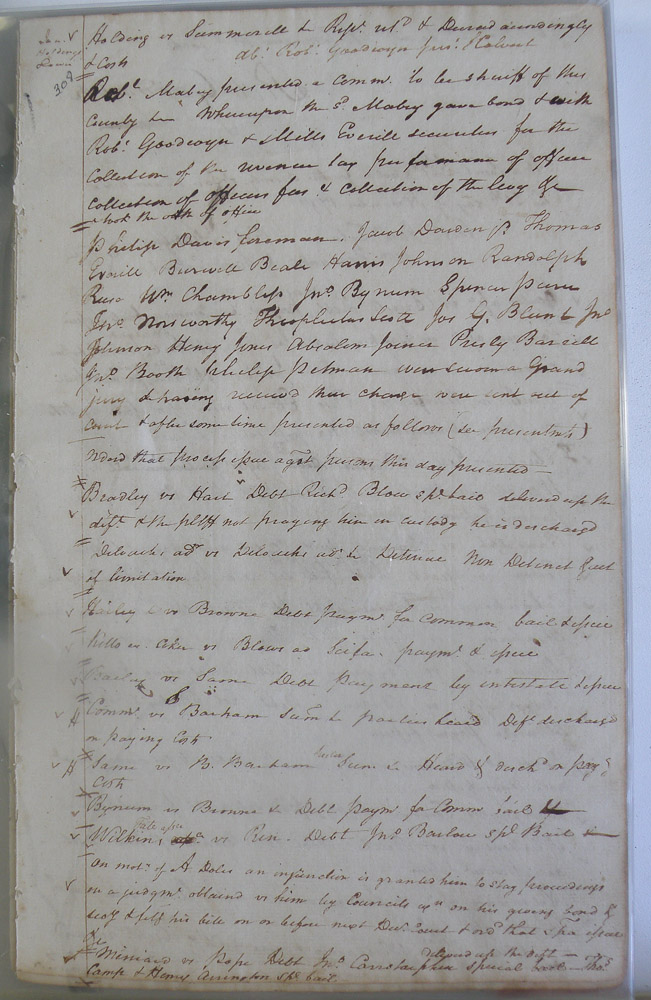 Holding vs Summerell &c Refs. retd & Decree accordingly
& Costs
abt. Robt. Goodwyn
309
Robt. Mabry presented a Comm. to be sheriff of this
County &c Whereupon the sd. Mabry gave bond & with
Robt. Goodwyn & Mills Everitt securities for the
Collection of the revenue tax performance of office
collection of officers fees & Collection of the levy &c
& took the oath of office
Philip Davis foreman, Jacob Darden jr. Thomas
Everitt Burwell Beale Harris Johnson Randolph
Reese Wm Chambliss Jno. Bynum Spencer
Jno. Norsworthy Theophilus Scott Jos G. Blunt Jno
Johnson Henry Jones Absalom Joiner Presly Barrett
Jno. Booth Philip Pitman were sworn a Grand
jury & having received their charge were sent out of
Court & after some time presented as follows (see presentmts)
Ordered that process issue agst. persons this day presented
Bradley vs Hart Debt Richd Blow spl. bail delivered up the
deft & the pltff not praying him in custody he is discharged
vs Detinue Non Detinet & act
of limitation
Hailey vs Browne Debt paymt. for common bail & issue
vs Blows ad Scifa. paymt. & issue
Bailey vs Same Debt payment by intestate & issue
Comm. vs Barham Sum &c parties heard Deft discharged
on paying Costs
Same vs B. Barham Sum &c Heard & disch. on payg.
Costs
Bynum vs Browne &c Debt paymt. for Comm bail
Wilkins vs Ren. Debt Jno. Barlow spl Bail
On motn. of A Doles an injunction is granted him to stay proceedings
on a judgmt. obtained vs him by Councils on his giving bond &
secy & file his bill on or before next Court & ord that spa issue
&c
Miniard vs Pope Debt Jno. special bail
delivered up the deft
Camp & Henry Arrington spl. bail